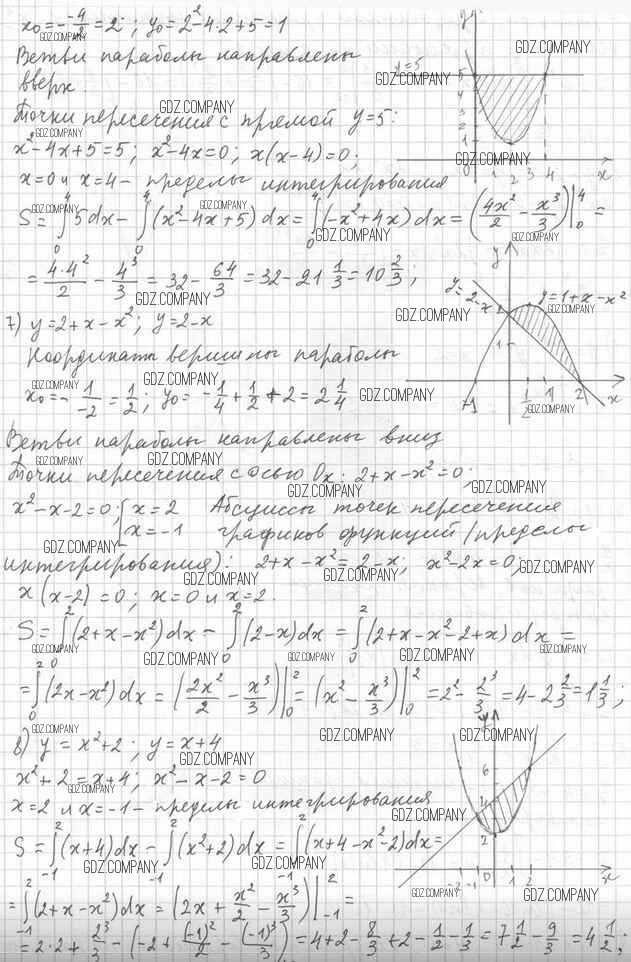 x₀ = -(-4/2) = 2; y₀ = 2² - 4·2 + 5 = 1
Ветви параболы направлены
вверх.
Точки пересечения с прямой y=5:
x² - 4x + 5 = 5; x² - 4x = 0; x(x-4) = 0;
x=0 и x=4 - пределы интегрирования
S = ∫₀⁴ 5dx - ∫₀⁴ (x² - 4x + 5) dx = ∫₀⁴ (-x² + 4x) dx = (4x²/2 - x³/3)|₀⁴ =
= 4·4²/2 - 4³/3 = 32 - 64/3 = 32 - 21 1/3 = 10 2/3;
7) y = 2 + x - x²; y = 2 - x
Координаты вершины параболы
x₀ = - 1/-2 = 1/2; y₀ = -1/4 + 1/2 + 2 = 2 1/4
Ветви параболы направлены вниз
Точки пересечения с осью Ox: 2 + x - x² = 0;
x² - x - 2 = 0; [x = 2 Абсциссы точек пересечения
x = -1 графиков функций (пределы
интегрирования): 2 + x - x² = 2 - x; x² - 2x = 0;
x(x-2) = 0; x = 0 и x = 2.
S = ∫₀² (2 + x - x²) dx - ∫₀² (2-x) dx = ∫₀² (2 + x - x² - 2 + x) dx =
= ∫₀² (2x - x²) dx = (2x²/2 - x³/3)|₀² = (x² - x³/3)|₀² = 2² - 2³/3 = 4 - 2 2/3 = 1 1/3;
8) y = x² + 2; y = x + 4
x² + 2 = x + 4; x² - x - 2 = 0
x = 2 и x = -1 - пределы интегрирования
S = ∫₋₁² (x+4) dx - ∫₋₁² (x²+2) dx = ∫₋₁² (x + 4 - x² - 2) dx =
= ∫₋₁² (2 + x - x²) dx = (2x + x²/2 - x³/3)|₋₁² =
= 2·2 + 2³/3 - (-2 + (-1)²/2 - (-1)³/3) = 4 + 2 - 8/3 + 2 - 1/2 - 1/3 = 7 1/2 - 9/3 = 4 1/2;
y
y=5
5
4
3
2
1
0
1 2 3 4 x
y
y = 2 - x
y = 1 + x - x²
2
1
-1 1/2 1 2 x
y
6
4
2
-2 -1 0 1 2 x
GDZ.COMPANY